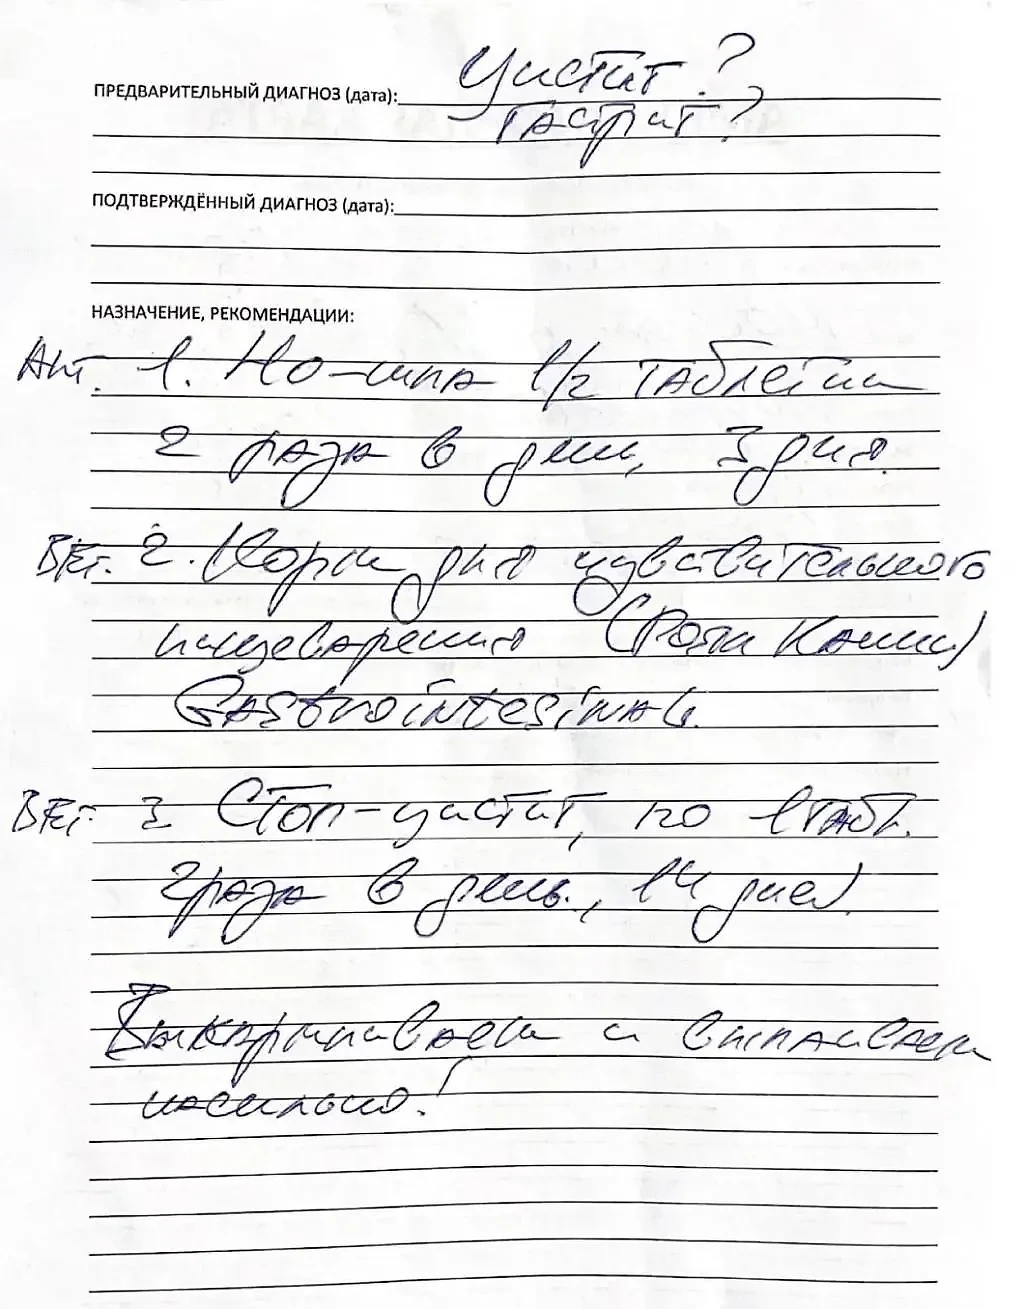 Цистит?
ПРЕДВАРИТЕЛЬНЫЙ ДИАГНОЗ (дата):
Гастрит?
ПОДТВЕРЖДЁННЫЙ ДИАГНОЗ (дата):
НАЗНАЧЕНИЕ, РЕКОМЕНДАЦИИ:
Апт. 1. Но-шпа 1/2 таблетки
2 раза в день, 3 дня.
Вет. 2. Корм для чувствительного
пищеварения (Роял Канин)
Gastrointestinal.
Вет. 3 Стоп-цистит, по 1 табл.
2 раза в день, 14 дней.
Выкармливаем и выпаиваем
насильно!